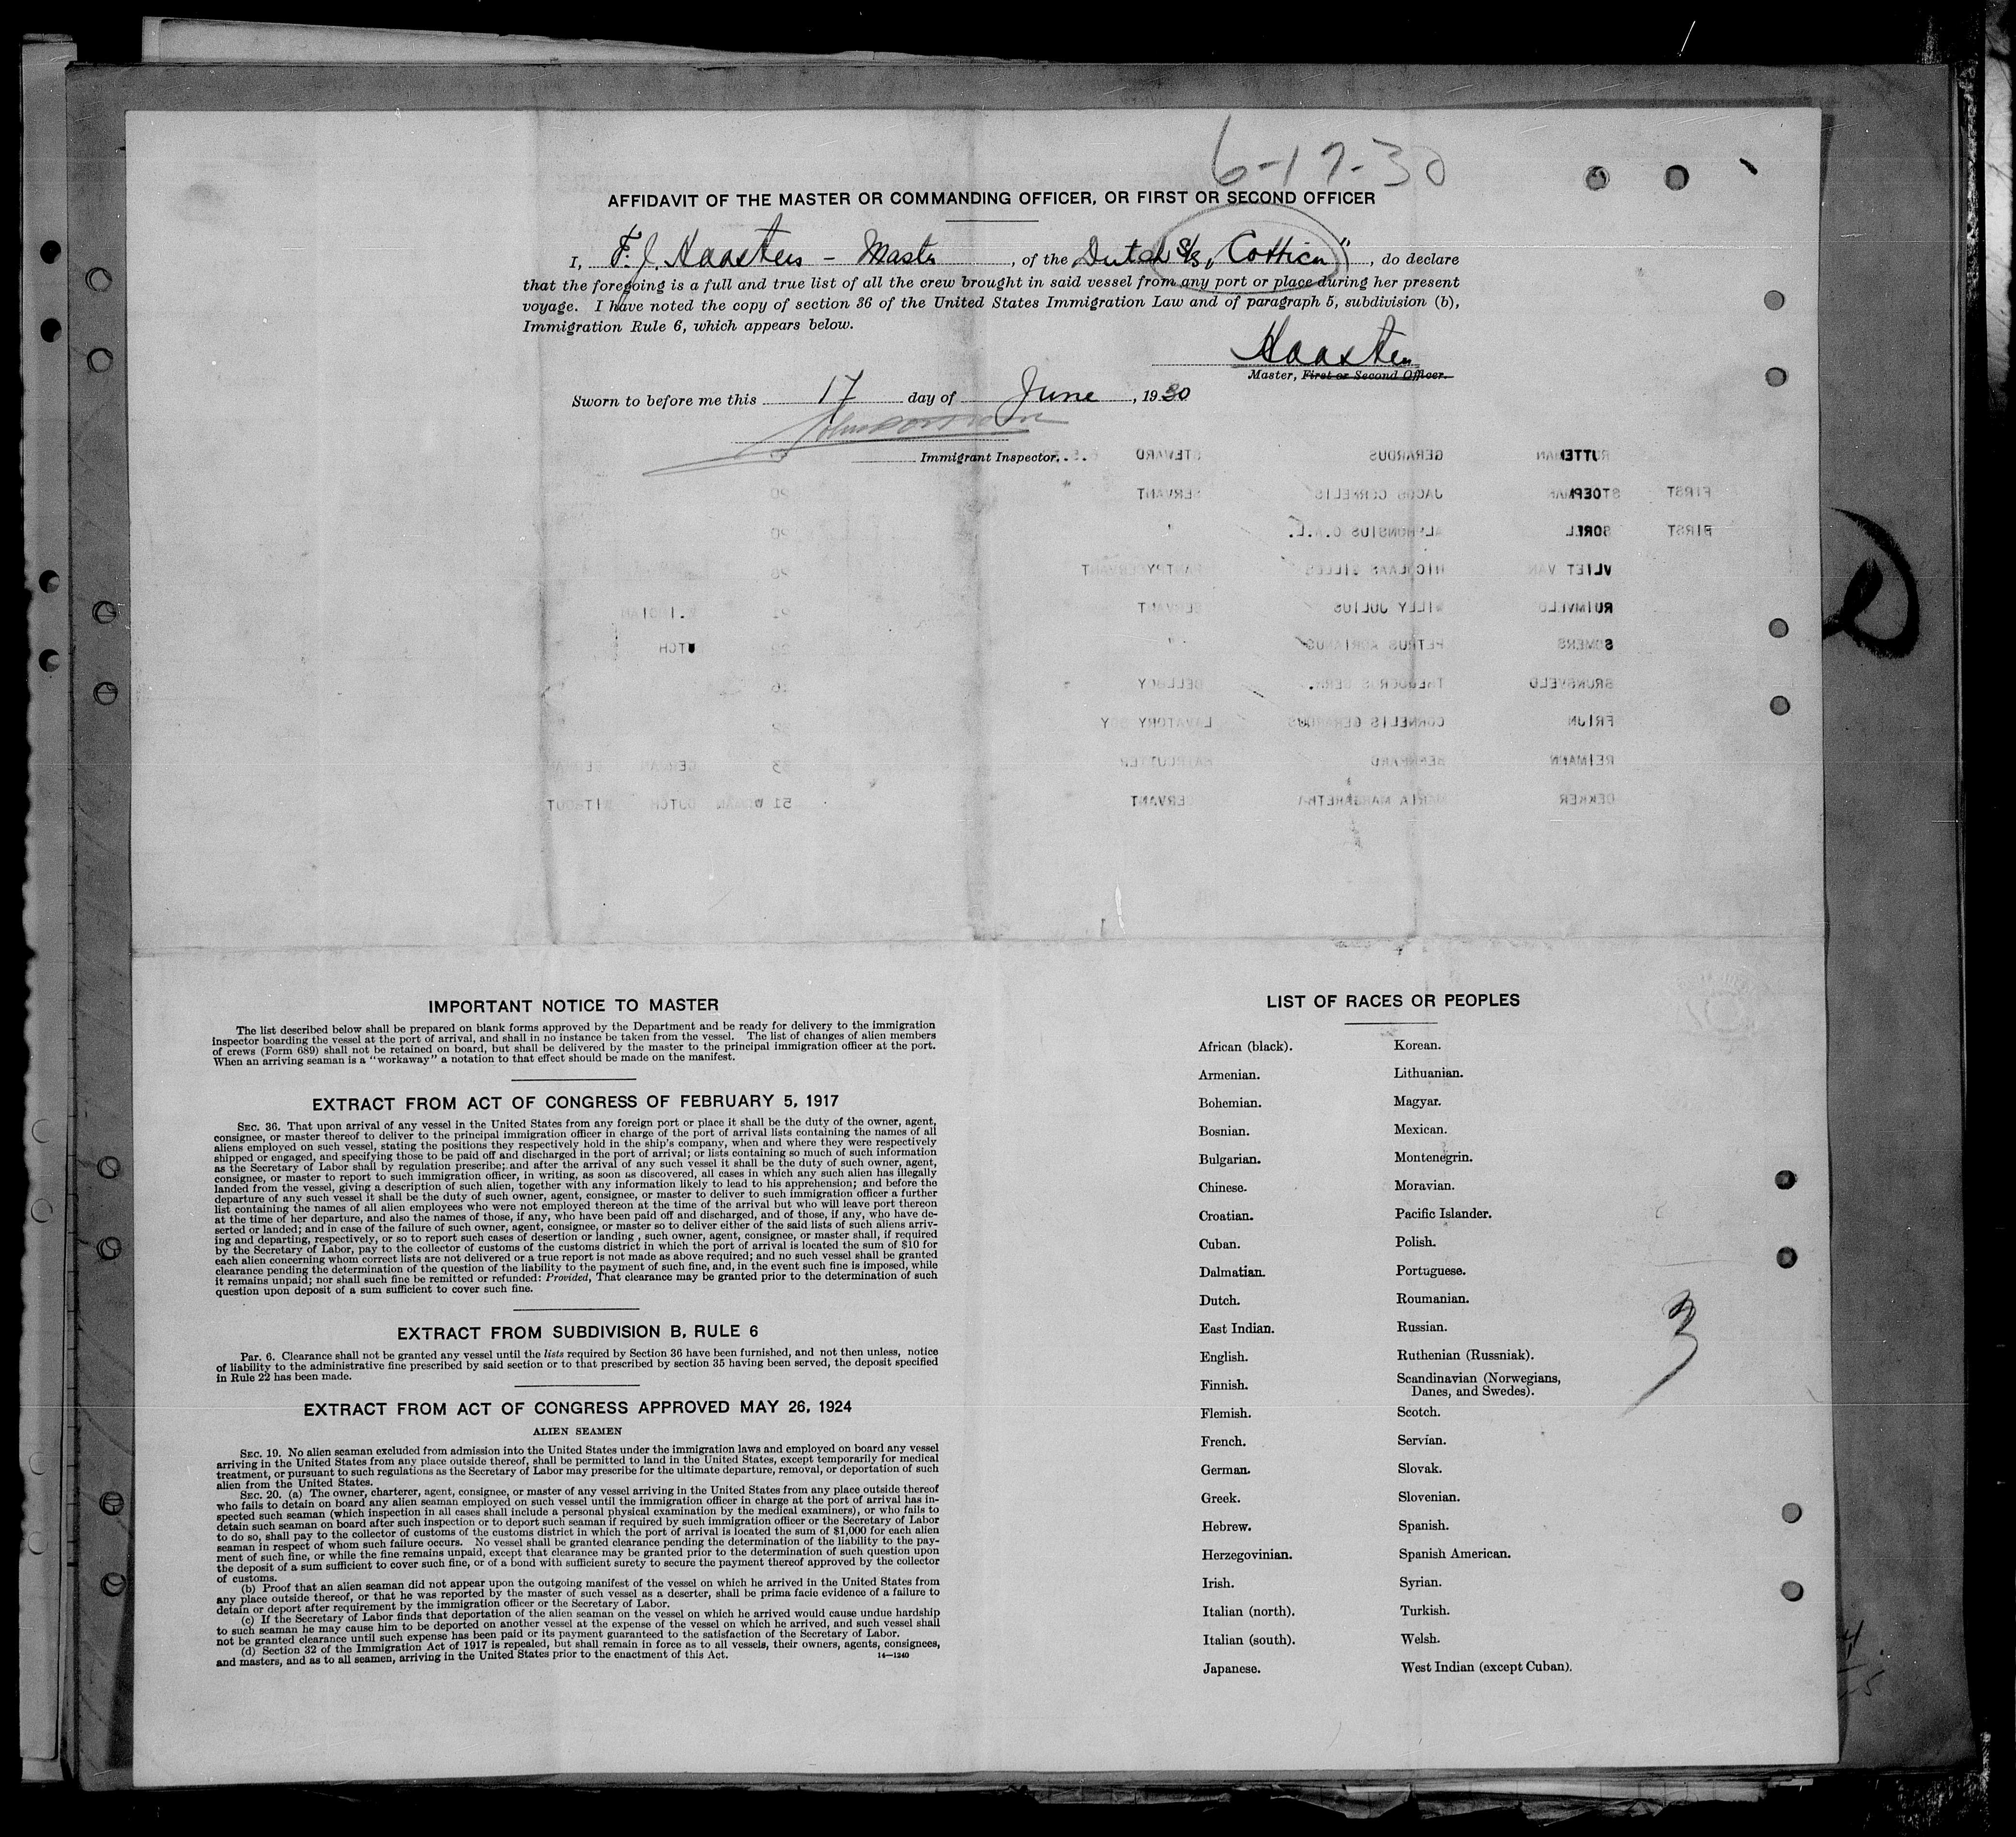 6-17-30
AFFIDAVIT OF THE MASTER OR COMMANDING OFFICER, OR FIRST OR SECOND OFFICER
I, F. J. Haasters – Master, of the Dutch S/S „Cottica", do declare
that the foregoing is a full and true list of all the crew brought in said vessel from any port or place during her present
voyage. I have noted the copy of section 36 of the United States Immigration Law and of paragraph 5, subdivision (b),
Immigration Rule 6, which appears below.
Master, First or Second Officer.
Sworn to before me this 17 day of June, 1930
Immigrant Inspector.
GERARDUS STEWARD
FIRST JACOB CORNELIS SERVANT 20
FIRST SORELL ALPHONSIUS O.A.L. " 20
VLIET VAN
RUIMVELD WILLY JULIUS SERVANT 21
SOMERS PETRUS ADRIANUS "
BRONSVELD BELLBOY 16
FRIJN CORNELIS GERARDUS LAVATORY BOY
REIMANN BERNARD HAIRCUTTER 33 GERMAN GERMAN
DEKKER MARIA MARGARETHA SERVANT 51 WOMAN DUTCH WITHOUT
IMPORTANT NOTICE TO MASTER
The list described below shall be prepared on blank forms approved by the Department and be ready for delivery to the immigration
inspector boarding the vessel at the port of arrival, and shall in no instance be taken from the vessel. The list of changes of alien members
of crews (Form 689) shall not be retained on board, but shall be delivered by the master to the principal immigration officer at the port.
When an arriving seaman is a "workaway" a notation to that effect should be made on the manifest.
EXTRACT FROM ACT OF CONGRESS OF FEBRUARY 5, 1917
SEC. 36. That upon arrival of any vessel in the United States from any foreign port or place it shall be the duty of the owner, agent,
consignee, or master thereof to deliver to the principal immigration officer in charge of the port of arrival lists containing the names of all
aliens employed on such vessel, stating the positions they respectively hold in the ship's company, when and where they were respectively
shipped or engaged, and specifying those to be paid off and discharged in the port of arrival; or lists containing so much of such information
as the Secretary of Labor shall by regulation prescribe; and after the arrival of any such vessel it shall be the duty of such owner, agent,
consignee, or master to report to such immigration officer, in writing, as soon as discovered, all cases in which any such alien has illegally
landed from the vessel, giving a description of such alien, together with any information likely to lead to his apprehension; and before the
departure of any such vessel it shall be the duty of such owner, agent, consignee, or master to deliver to such immigration officer a further
list containing the names of all alien employees who were not employed thereon at the time of the arrival but who will leave port thereon
at the time of her departure, and also the names of those, if any, who have been paid off and discharged, and of those, if any, who have de-
serted or landed; and in case of the failure of such owner, agent, consignee, or master so to deliver either of the said lists of such aliens arriv-
ing and departing, respectively, or so to report such cases of desertion or landing , such owner, agent, consignee, or master shall, if required
by the Secretary of Labor, pay to the collector of customs of the customs district in which the port of arrival is located the sum of $10 for
each alien concerning whom correct lists are not delivered or a true report is not made as above required; and no such vessel shall be granted
clearance pending the determination of the question of the liability to the payment of such fine, and, in the event such fine is imposed, while
it remains unpaid; nor shall such fine be remitted or refunded: Provided, That clearance may be granted prior to the determination of such
question upon deposit of a sum sufficient to cover such fine.
EXTRACT FROM SUBDIVISION B, RULE 6
Par. 6. Clearance shall not be granted any vessel until the lists required by Section 36 have been furnished, and not then unless, notice
of liability to the administrative fine prescribed by said section or to that prescribed by section 35 having been served, the deposit specified
in Rule 22 has been made.
EXTRACT FROM ACT OF CONGRESS APPROVED MAY 26, 1924
ALIEN SEAMEN
SEC. 19. No alien seaman excluded from admission into the United States under the immigration laws and employed on board any vessel
arriving in the United States from any place outside thereof, shall be permitted to land in the United States, except temporarily for medical
treatment, or pursuant to such regulations as the Secretary of Labor may prescribe for the ultimate departure, removal, or deportation of such
alien from the United States.
SEC. 20. (a) The owner, charterer, agent, consignee, or master of any vessel arriving in the United States from any place outside thereof
who fails to detain on board any alien seaman employed on such vessel until the immigration officer in charge at the port of arrival has in-
spected such seaman (which inspection in all cases shall include a personal physical examination by the medical examiners), or who fails to
detain such seaman on board after such inspection or to deport such seaman if required by such immigration officer or the Secretary of Labor
to do so, shall pay to the collector of customs of the customs district in which the port of arrival is located the sum of $1,000 for each alien
seaman in respect of whom such failure occurs. No vessel shall be granted clearance pending the determination of the liability to the pay-
ment of such fine, or while the fine remains unpaid, except that clearance may be granted prior to the determination of such question upon
the deposit of a sum sufficient to cover such fine, or of a bond with sufficient surety to secure the payment thereof approved by the collector
of customs.
(b) Proof that an alien seaman did not appear upon the outgoing manifest of the vessel on which he arrived in the United States from
any place outside thereof, or that he was reported by the master of such vessel as a deserter, shall be prima facie evidence of a failure to
detain or deport after requirement by the immigration officer or the Secretary of Labor.
(c) If the Secretary of Labor finds that deportation of the alien seaman on the vessel on which he arrived would cause undue hardship
to such seaman he may cause him to be deported on another vessel at the expense of the vessel on which he arrived, and such vessel shall
not be granted clearance until such expense has been paid or its payment guaranteed to the satisfaction of the Secretary of Labor.
(d) Section 32 of the Immigration Act of 1917 is repealed, but shall remain in force as to all vessels, their owners, agents, consignees,
and masters, and as to all seamen, arriving in the United States prior to the enactment of this Act. 14—1240
LIST OF RACES OR PEOPLES
African (black). Korean.
Armenian. Lithuanian.
Bohemian. Magyar.
Bosnian. Mexican.
Bulgarian. Montenegrin.
Chinese. Moravian.
Croatian. Pacific Islander.
Cuban. Polish.
Dalmatian. Portuguese.
Dutch. Roumanian.
East Indian. Russian.
English. Ruthenian (Russniak).
Finnish. Scandinavian (Norwegians,
Danes, and Swedes).
Flemish. Scotch.
French. Servian.
German. Slovak.
Greek. Slovenian.
Hebrew. Spanish.
Herzegovinian. Spanish American.
Irish. Syrian.
Italian (north). Turkish.
Italian (south). Welsh.
Japanese. West Indian (except Cuban).
3